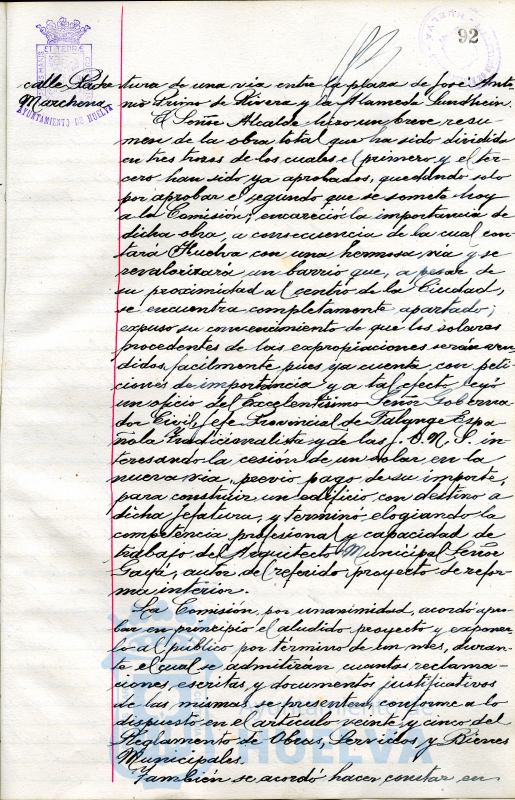 92
calle Padre
Marchena
AYUNTAMIENTO DE HUELVA
tura de una vía entre la plaza de José Anto-
nio Primo de Rivera y la Alameda Sundheim.
El Señor Alcalde hizo un breve resu-
men de la obra total que ha sido dividida
en tres trozos de los cuales el primero y el ter-
cero han sido ya aprobados, quedando solo
por aprobar el segundo que se somete hoy
a la Comisión; encareció la importancia de
dicha obra, a consecuencia de la cual con-
tará Huelva con una hermosa vía y se
revalorizará un barrio que, a pesar de
su proximidad al centro de la Ciudad,
se encuentra completamente apartado;
expuso su convencimiento de que los solares
procedentes de las expropiaciones serán ven-
didos facilmente pues ya cuenta con peti-
ciones de importancia y a tal efecto leyó
un oficio del Excelentísimo Señor Goberna-
dor Civil, Jefe Provincial de Falange Espa-
ñola Tradicionalista y de las J.O.N.S. in-
teresando la cesión de un solar en la
nueva vía, previo pago de su importe,
para construir un edificio con destino a
dicha Jefatura, y terminó elogiando la
competencia profesional y capacidad de
trabajo del Arquitecto Municipal Señor
Gayá, autor del referido proyecto de refor-
ma interior.
La Comisión, por unanimidad, acordó apro-
bar en principio el aludido proyecto y exponer-
lo al público por término de un mes, duran-
te el cual se admitirán cuantas reclama-
ciones, escritas y documentos justificativos
de las mismas se presenten, conforme a lo
dispuesto en el artículo veinte y cinco del
Reglamento de Obras, Servicios y Bienes
Municipales.
También se acordó hacer constar en
Ayuntamiento de
HUELVA